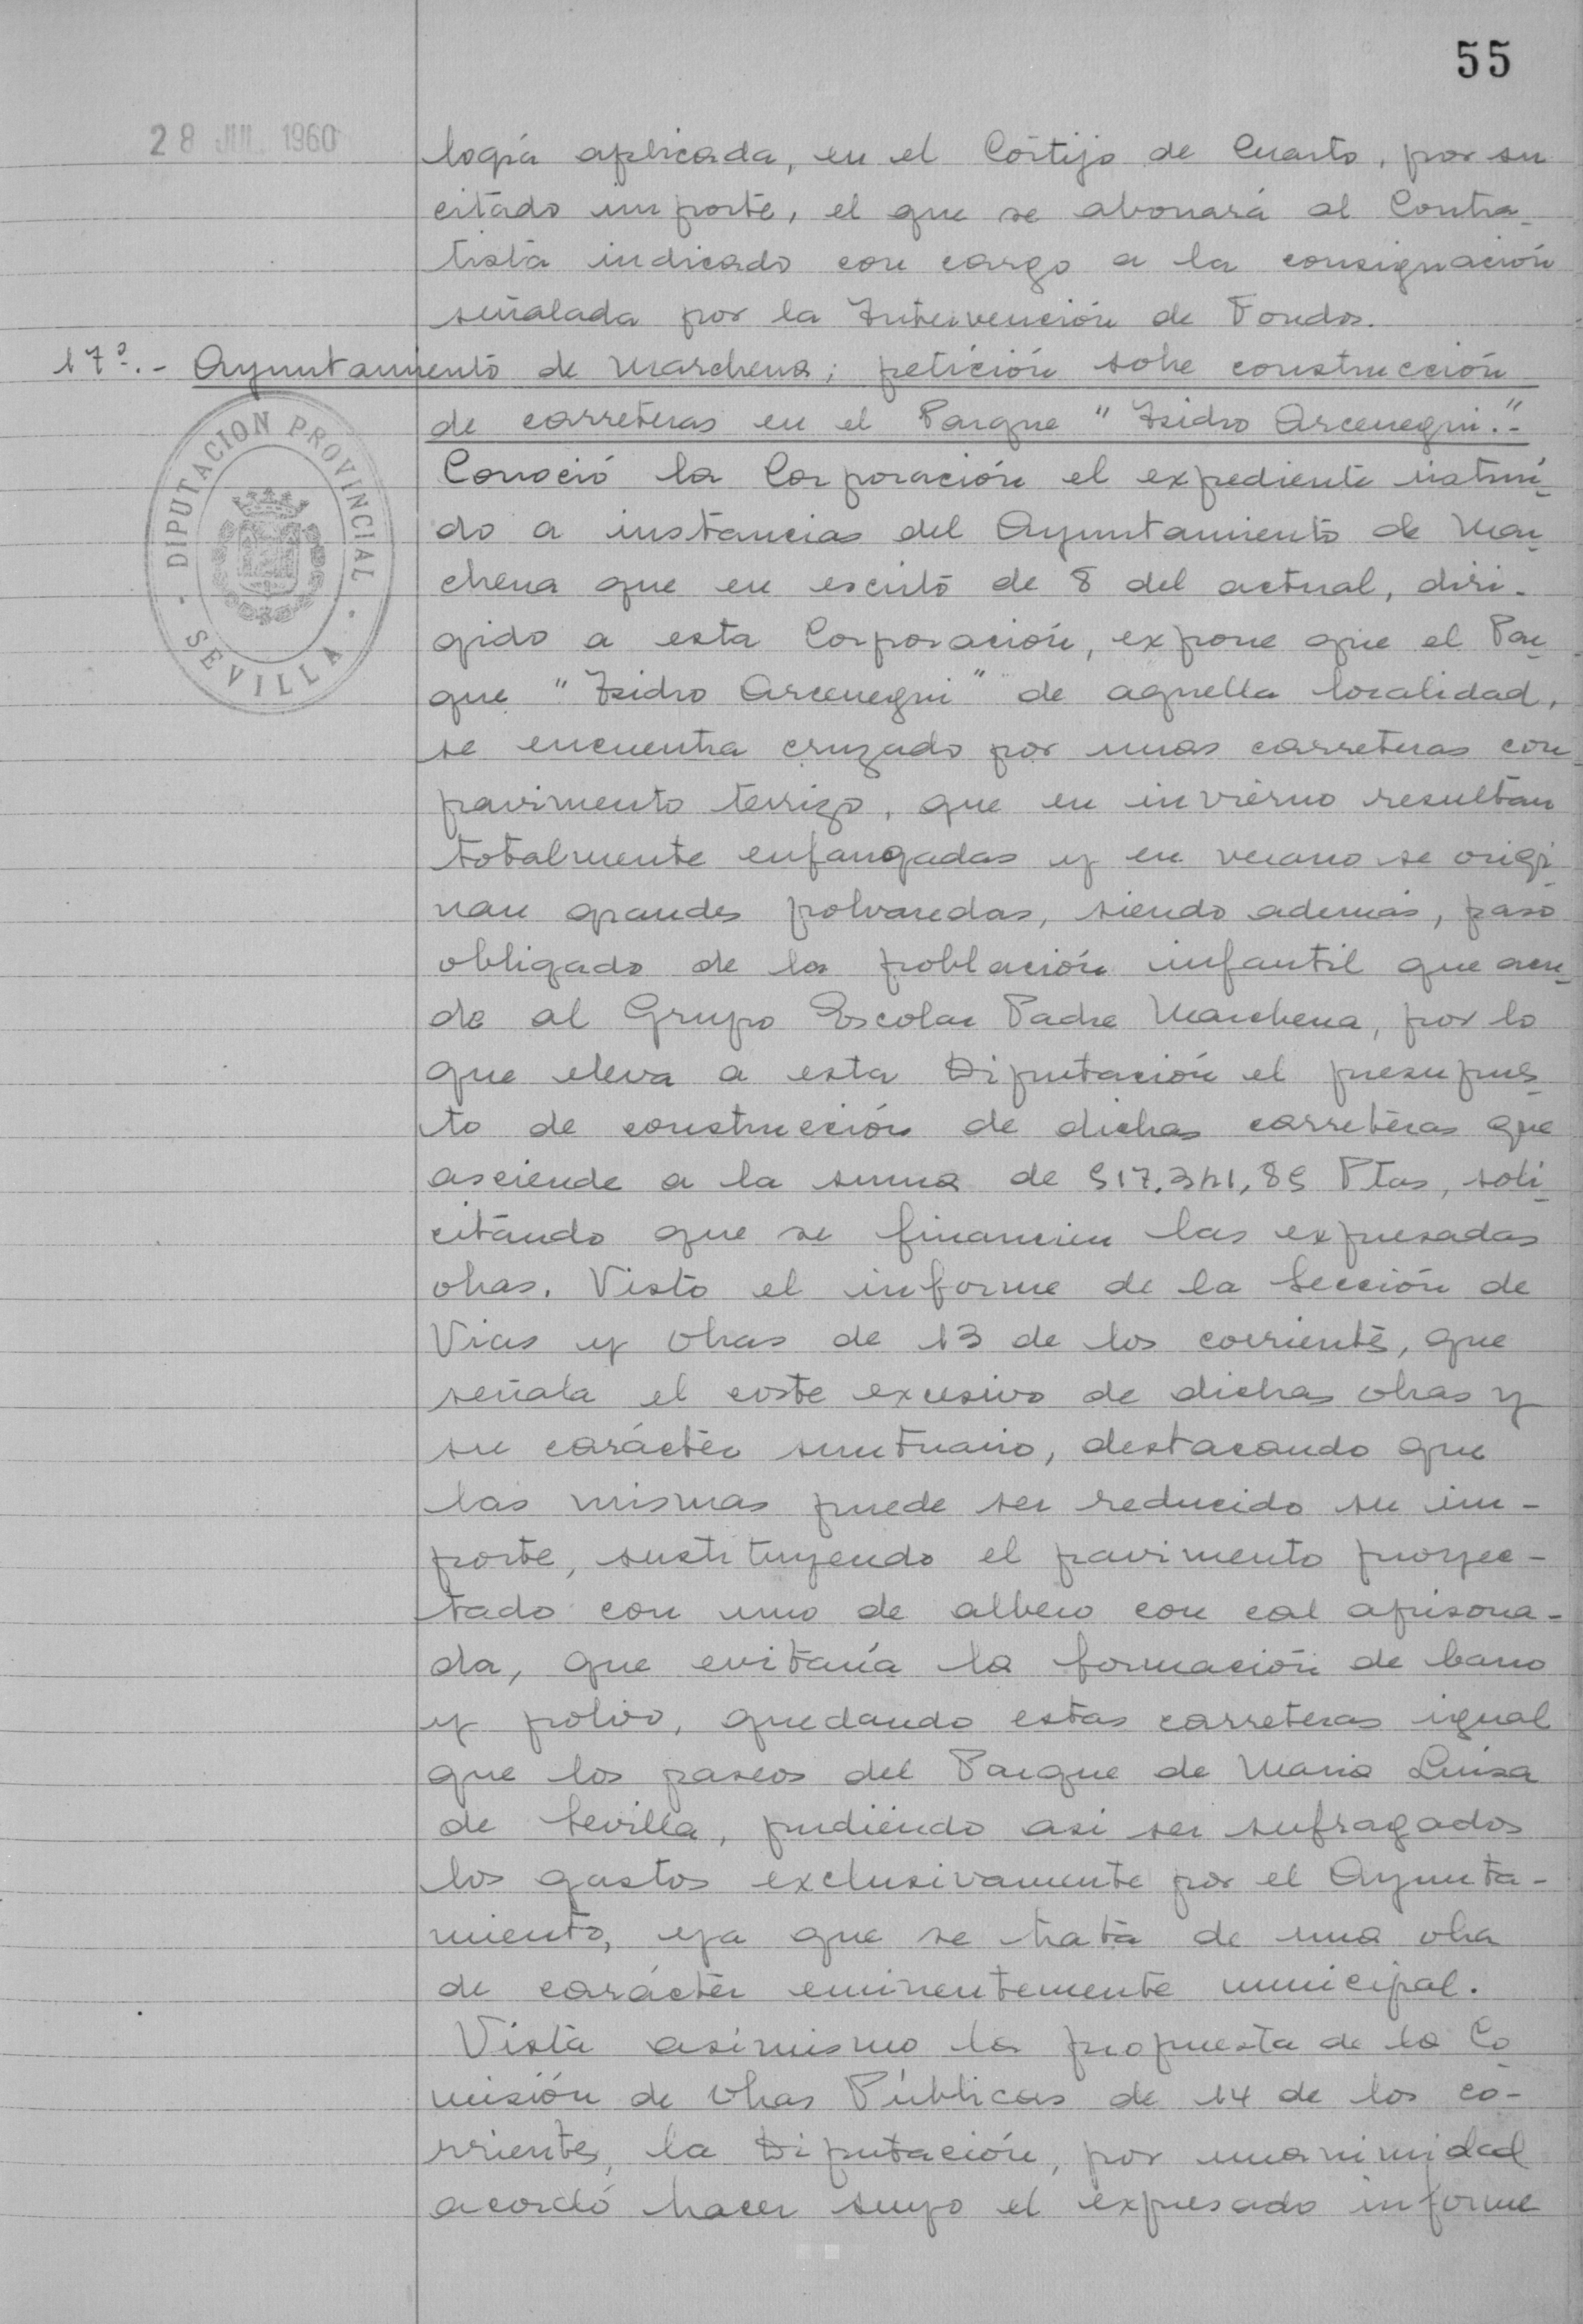 55
28 JUL. 1960
logía aplicada, en el Cortijo de Cuarto, por su
citado importe, el que se abonará al Contra-
tista indicado con cargo a la consignación
señalada por la Intervención de Fondos.
17º.- Ayuntamiento de Marchena; petición sobre construcción
de carreteras en el Parque "Isidro Arcenegui".-
DIPUTACION PROVINCIAL · SEVILLA ·
Conoció la Corporación el expediente instruí-
do a instancias del Ayuntamiento de Mar-
chena que en escrito de 8 del actual, diri-
gido a esta Corporación, expone que el Par-
que "Isidro Arcenegui" de aquella localidad,
se encuentra cruzado por unas carreteras con
pavimento terrizo, que en invierno resultan
totalmente enfangadas y en verano se origi-
nan grandes polvaredas, siendo además, paso
obligado de la población infantil que acu-
de al Grupo Escolar Padre Marchena, por lo
que eleva a esta Diputación el presupues-
to de construcción de dichas carreteras que
asciende a la suma de 517.341,85 Ptas, soli-
citando que se financien las expresadas
obras. Visto el informe de la Sección de
Vias y Obras de 13 de los corrientes, que
señala el coste excesivo de dichas obras y
su carácter suntuario, destacando que
las mismas puede ser reducido su im-
porte, sustituyendo el pavimento proyec-
tado con uno de albero con cal apisona-
da, que evitaría la formación de barro
y polvo, quedando estas carreteras igual
que los paseos del Parque de Maria Luisa
de Sevilla, pudiendo asi ser sufragados
los gastos exclusivamente por el Ayunta-
miento, ya que se trata de una obra
de carácter eminentemente municipal.
Vista asimismo la propuesta de la Co-
misión de Obras Públicas de 14 de los co-
rrientes, la Diputación, por unanimidad
acordó hacer suyo el expresado informe